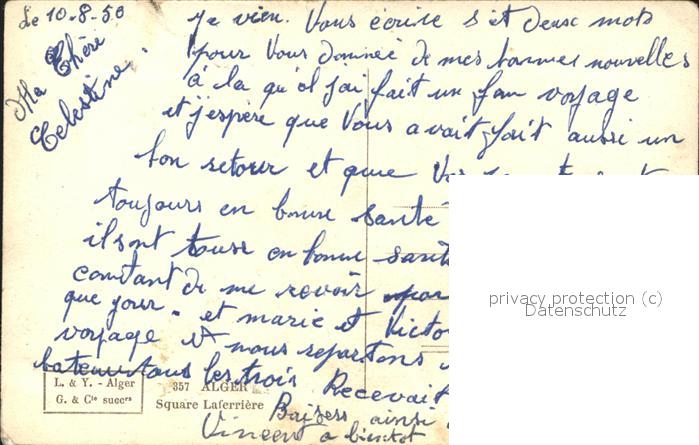 Le 10-8-50
Ma Chèri
Celestine.
je vien. Vous écrire s et deux mots
pour Vous donneé de mes bonnes nouvelles
à la qu'el j'ai fait un bon voyage
et j'espère que Vous avait fait aussi un
bon retour et que
toujours en bonne santé
ilsont tousse en bonne santé
comtant de me revoir
que jour. et marie et Victo
voyage et nous repartons
bateau tous les trois Recevait
L. & Y. - Alger
G. & Cie succrs
357 ALGER
Square Laferrière
Baisers ainsi
Vincent a bientot
privacy protection (c)
Datenschutz